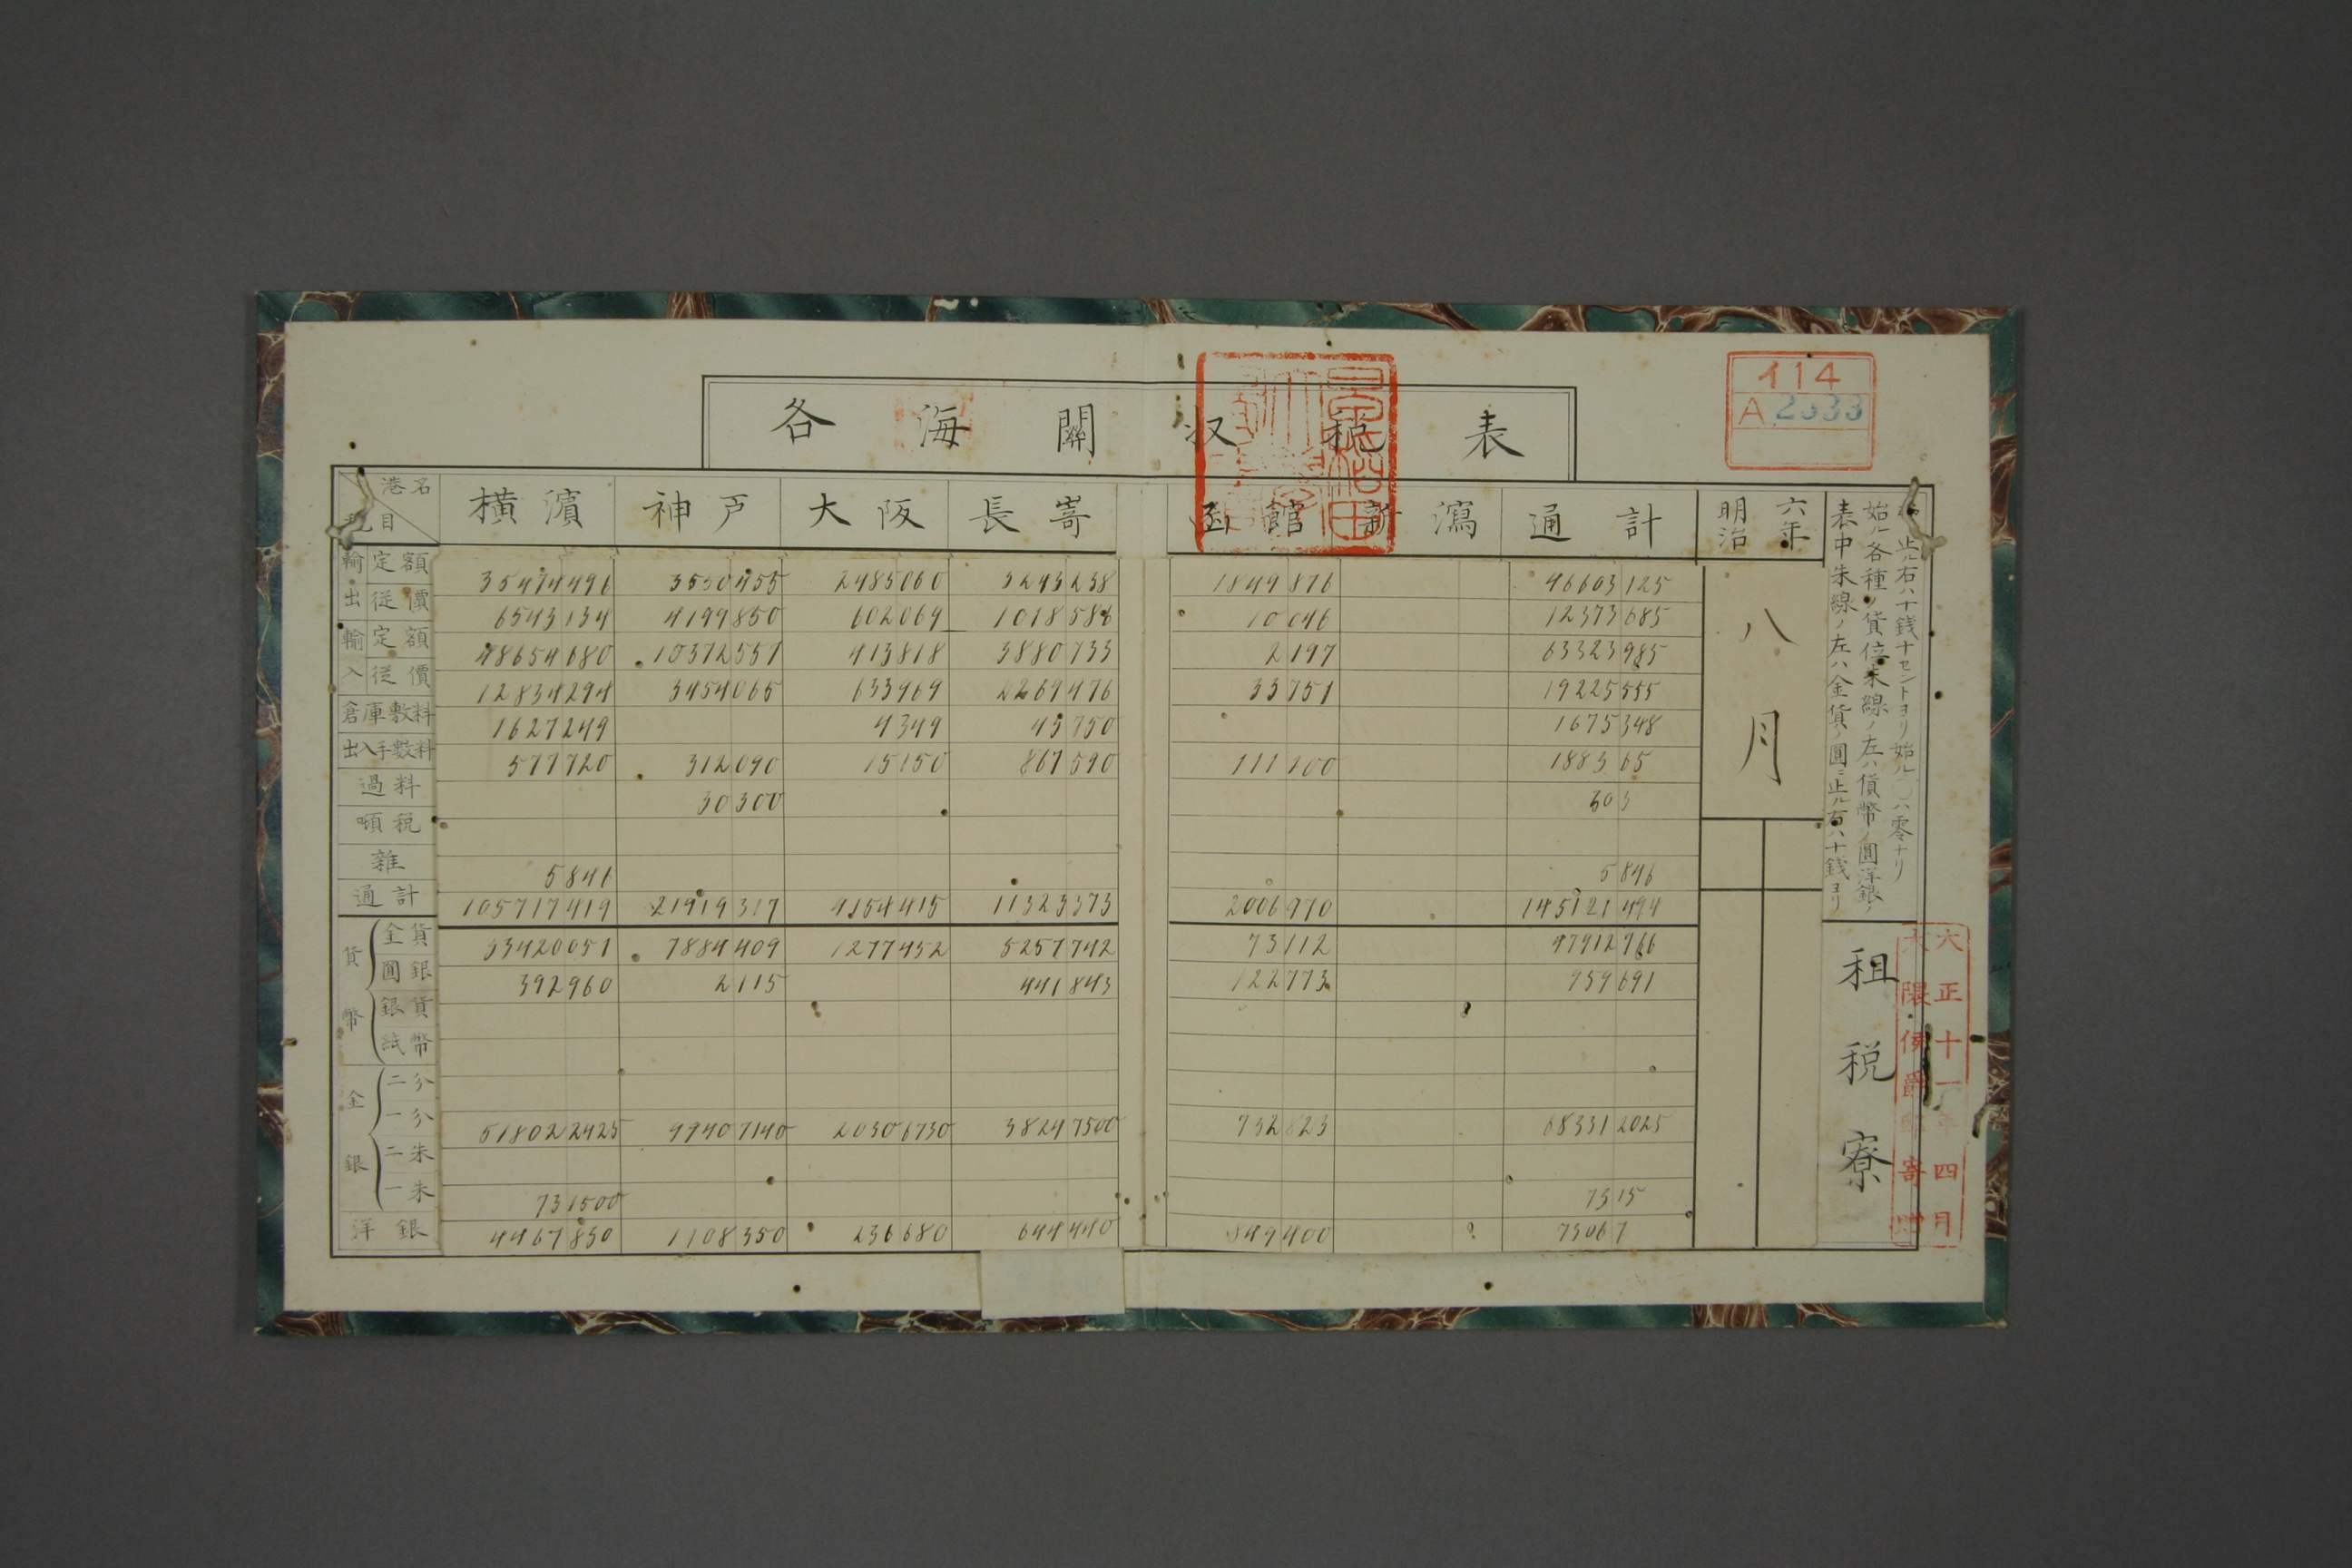 各海關収税表
イ14
A 2333
港名
税目
横濵 神戸 大阪 長嵜 函館 新潟 通計
明治六年
八月
輸出 定額 35474496 3530455 2485060 3243238 1849876 46603125
従價 6543134 4199850 602069 1018586 10046 12373685
輸入 定額 48654680 10372557 413818 3880733 2197 63323985
従價 12834294 3454065 633969 2269476 33751 19225555
倉庫敷料 1627249 4349 43750 1675348
出入手數料 577720 312090 15150 867590 111100 188365
過料 30300 303
噸税
雜 5846 5846
通計 105717419 21919317 4154415 11323373 2006970 145121494
貨幣 金貨 33420051 7884409 1277452 5257742 73112 47912766
圓銀 392960 2115 441843 122773 959691
銀貨
紙幣
金銀 二分
一分 518022425 99407140 20306730 38247500 732623 683312025
二朱
一朱 731500 7315
洋銀 4467850 1108350 236680 644440 849400 73067
表中朱線ノ左ハ金貨ノ圓ニ止ル右ハ十錢ヨリ
始ル各種ノ貨位朱線ノ左ハ貨幣ノ圓洋銀ノ
止ル右ハ十錢十セントヨリ始ル〇ハ零ナリ
租税寮
大正十一年四月
大隈侯爵邸寄贈